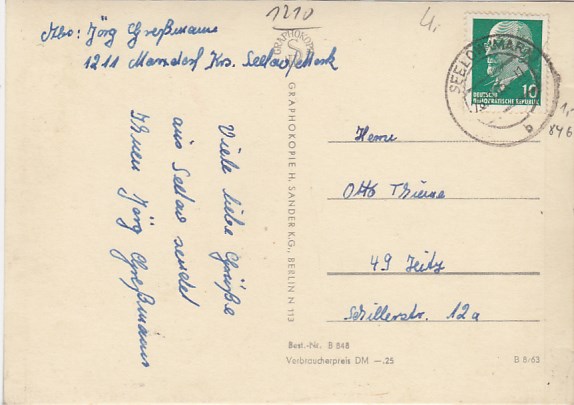 1210
4,
Abs: Jörg Greßmann
1211 Manndorf Krs. Seelow/Mark
Viele liebe Grüße
aus Seelow sendet
Ihnen Jörg Greßmann
GRAPHOKOPIE
GRAPHOKOPIE H. SANDER K.G., BERLIN N 113
SEELOW (MARK)
b
DEUTSCHE
DEMOKRATISCHE REPUBLIK
10
1,-
846
Herrn
Otto Thieme
49 Zeitz
Schillerstr. 12a
Best.-Nr. B 848
Verbraucherpreis DM —.25
B 8/63